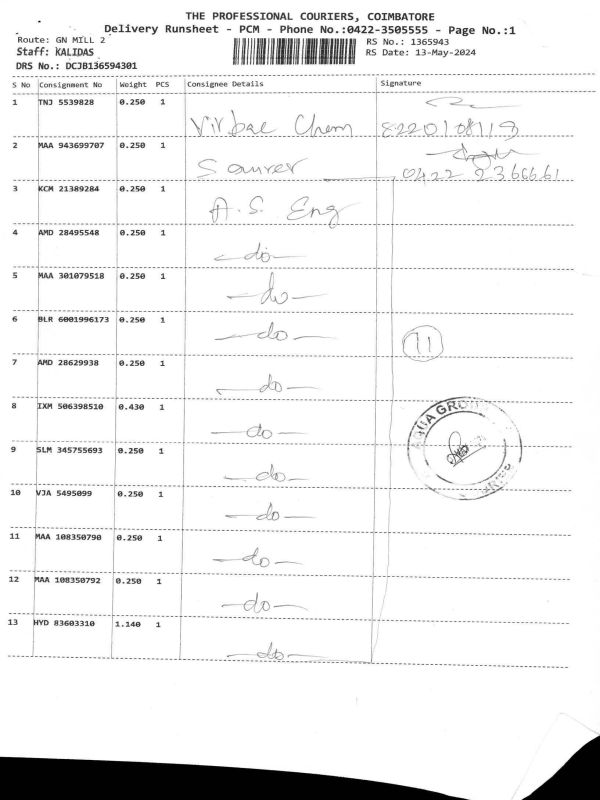 THE PROFESSIONAL COURIERS, COIMBATORE
Delivery Runsheet - PCM - Phone No.:0422-3505555 - Page No.:1
Route: GN MILL 2 RS No.: 1365943
Staff: KALIDAS RS Date: 13-May-2024
DRS No.: DCJB136594301
S No Consignment No Weight PCS Consignee Details Signature
1 TNJ 5539828 0.250 1
Virbac Chem 8220108119
2 MAA 943699707 0.250 1
Saurer 0422 2366661
3 KCM 21389284 0.250 1
A.S. Eng
4 AMD 28495548 0.250 1
-do-
5 MAA 301079518 0.250 1
-do-
6 BLR 6001996173 0.250 1
-do- 11
7 AMD 28629938 0.250 1
-do-
8 IXM 506398510 0.430 1
-do-
9 SLM 345755693 0.250 1
-do-
10 VJA 5495099 0.250 1
-do-
11 MAA 108350790 0.250 1
-do-
12 MAA 108350792 0.250 1
-do-
13 HYD 83603310 1.140 1
-do-